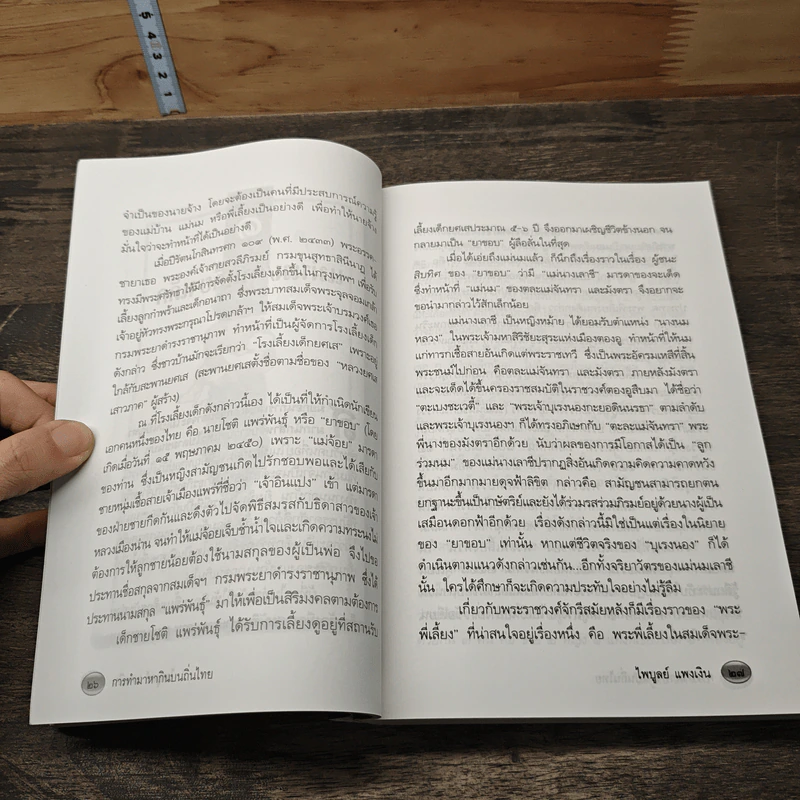 5
4
3
2
1
จำเป็นของนายจ้าง โดยจะต้องเป็นคนที่มีประสบการณ์ความรู้
ของแม่บ้าน แม่นม หรือพี่เลี้ยงเป็นอย่างดี เพื่อทำให้นายจ้าง
มั่นใจว่าจะทำหน้าที่ได้เป็นอย่างดี
เมื่อปีรัตนโกสินทรศก ๑๐๙ (พ.ศ. ๒๔๓๓) พระอรรค
ชายาเธอ พระองค์เจ้าสายสวลีภิรมย์ กรมขุนสุทธาสินีนาฏ ได้
ทรงมีพระศรัทธาให้มีการจัดตั้งโรงเลี้ยงเด็กขึ้นในกรุงเทพฯ เพื่อรับ
เลี้ยงลูกกำพร้าและเด็กอนาถา ซึ่งพระบาทสมเด็จพระจุลจอมเกล้า
เจ้าอยู่หัวทรงพระกรุณาโปรดเกล้าฯ ให้สมเด็จพระเจ้าบรมวงศ์เธอ
กรมพระยาดำรงราชานุภาพ ทำหน้าที่เป็นผู้จัดการโรงเลี้ยงเด็ก
ดังกล่าว ซึ่งชาวบ้านมักจะเรียกว่า "โรงเลี้ยงเด็กยศเส" เพราะอยู่
ใกล้กับสะพานยศเส (สะพานยศเสตั้งชื่อตามชื่อของ "หลวงยศเส
เสาวภาค" ผู้สร้าง)
ณ ที่โรงเลี้ยงเด็กดังกล่าวนี้เอง ได้เป็นที่ให้กำเนิดนักเขียน
เอกคนหนึ่งของไทย คือ นายโชติ แพร่พันธุ์ หรือ "ยาขอบ" (โดย
เกิดเมื่อวันที่ ๑๕ พฤษภาคม ๒๔๕๐) เพราะ "แม่จ้อย" มารดา
ของท่าน ซึ่งเป็นหญิงสามัญชนเกิดไปรักชอบพอและได้เสียกับ
ชายหนุ่มเชื้อสายเจ้าเมืองแพร่ที่ชื่อว่า "เจ้าอินแปง" เข้า แต่มารดา
ของฝ่ายชายกีดกันและดึงตัวไปจัดพิธีสมรสกับธิดาสาวของเจ้า
หลวงเมืองน่าน จนทำให้แม่จ้อยเจ็บช้ำน้ำใจและเกิดความทระนงไม่
ต้องการให้ลูกชายน้อยต้องใช้นามสกุลของผู้เป็นพ่อ จึงไปขอ
ประทานชื่อสกุลจากสมเด็จฯ กรมพระยาดำรงราชานุภาพ ซึ่งได้
ประทานนามสกุล "แพร่พันธุ์" มาให้เพื่อเป็นสิริมงคลตามต้องการ
เด็กชายโชติ แพร่พันธุ์ ได้รับการเลี้ยงดูอยู่ที่สถานรับ
๒๖ การทำมาหากินบนถิ่นไทย
เลี้ยงเด็กยศเสประมาณ ๕-๖ ปี จึงออกมาเผชิญชีวิตข้างนอก จน
กลายมาเป็น "ยาขอบ" ผู้ลือลั่นในที่สุด
เมื่อได้เอ่ยถึงแม่นมแล้ว ก็นึกถึงเรื่องราวในเรื่อง ผู้ชนะ
สิบทิศ ของ "ยาขอบ" ว่ามี "แม่นางเลาชี" มารดาของจะเด็ด
ซึ่งทำหน้าที่ "แม่นม" ของตะละแม่จันทรา และมังตรา จึงอยากจะ
ขอนำมากล่าวไว้สักเล็กน้อย
แม่นางเลาชี เป็นหญิงหม้าย ได้ยอมรับตำแหน่ง "นางนม
หลวง" ในพระเจ้ามหาสิริชัยยะสุระแห่งเมืองตองอู ทำหน้าที่ให้นม
แก่ทารกเชื้อสายอันเกิดแต่พระราชเทวี ซึ่งเป็นพระอัครมเหสีที่สิ้น
พระชนม์ไปก่อน คือตะละแม่จันทราและมังตรา ภายหลังมังตรา
และจะเด็ดได้ขึ้นครองราชสมบัติในราชวงศ์ตองอูสืบมา ได้ชื่อว่า
"ตะเบงชะเวตี้" และ "พระเจ้าบุเรงนองกะยอดินนรธา" ตามลำดับ
และพระเจ้าบุเรงนองฯ ก็ได้ทรงอภิเษกกับ "ตะละแม่จันทรา" พระ
พี่นางของมังตราอีกด้วย นับว่าผลของการมีโอกาสได้เป็น "ลูก
ร่วมนม" ของแม่นางเลาชีปรากฏสิ่งอันเกิดความคิดความคาดหวัง
ขึ้นมาอีกมากมายดุจฟ้าลิขิต กล่าวคือ สามัญชนสามารถยกตน
ยกฐานะขึ้นเป็นกษัตริย์และยังได้ร่วมรสร่วมภิรมย์อยู่ด้วยนางผู้เป็น
เสมือนดอกฟ้าอีกด้วย เรื่องดังกล่าวนี้มิใช่เป็นแต่เรื่องในนิยาย
ของ "ยาขอบ" เท่านั้น หากแต่ชีวิตจริงของ "บุเรงนอง" ก็ได้
ดำเนินตามแนวดังกล่าวเช่นกัน...อีกทั้งจริยาวัตรของแม่นมเลาชี
นั้น ใครได้ศึกษาก็จะเกิดความประทับใจอย่างไม่รู้ลืม
เกี่ยวกับพระราชวงศ์จักรีสมัยหลังก็มีเรื่องราวของ "พระ
พี่เลี้ยง" ที่น่าสนใจอยู่เรื่องหนึ่ง คือ พระพี่เลี้ยงในสมเด็จพระ-
ไพบูลย์ แพงเงิน ๒๗